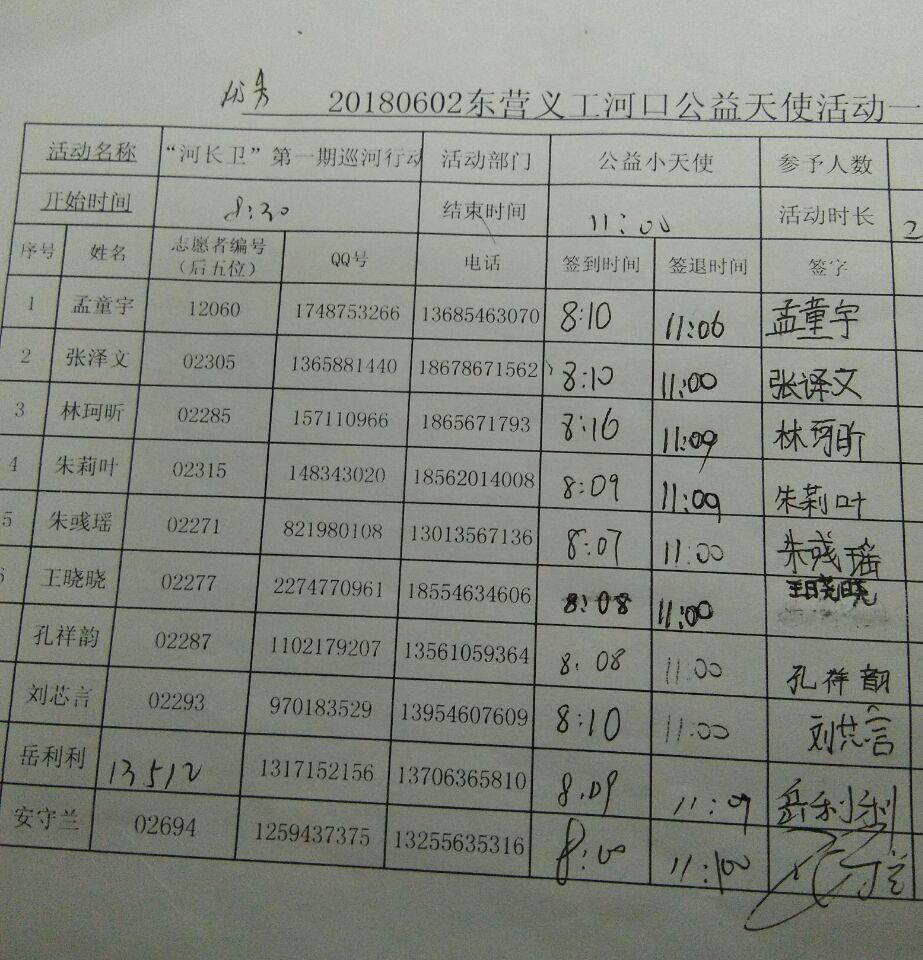 20180602东营义工河口公益天使活动一
活动名称 “河长卫”第一期巡河行动 活动部门 公益小天使 参予人数
开始时间 8:30 结束时间 11:00 活动时长 2
序号 姓名 志愿者编号（后五位） QQ号 电话 签到时间 签退时间 签字
1 孟童宇 12060 1748753266 13685463070 8:10 11:06 孟童宇
2 张泽文 02305 1365881440 18678671562 8:10 11:00 张译文
3 林珂昕 02285 157110966 1865671793 8:16 11:09 林珂昕
4 朱莉叶 02315 148343020 18562014008 8:09 11:09 朱莉叶
5 朱彧瑶 02271 821980108 13013567136 8:07 11:00 朱彧瑶
王晓晓 02277 2274770961 18554634606 8:08 11:00 王晓晓
孔祥韵 02287 1102179207 13561059364 8:08 11:00 孔祥韵
刘芯言 02293 970183529 13954607609 8:10 11:00 刘芯言
岳利利 13512 1317152156 13706365810 8:09 11:09 岳利利
安守兰 02694 1259437375 13255635316 8:00 11:00